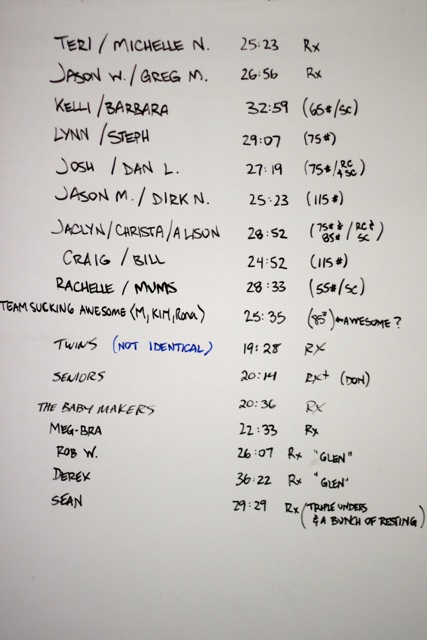 TERI / MICHELLE N. 25:23 RX
JASON W. / GREG M. 26:56 RX
KELLI / BARBARA 32:59 (65# / SC)
LYNN / STEPH 29:07 (75#)
JOSH / DAN L. 27:19 (75# / RC & SC)
JASON M. / DIRK N. 25:23 (115#)
JACLYN / CHRISTA / ALISON 28:52 (75# & 85# / RC & SC)
CRAIG / BILL 24:52 (115#)
RACHELLE / MUMS 28:33 (55# / SC)
TEAM SUCKING AWESOME (M, KIM, Rona) 25:35 (85#) ← AWESOME?
TWINS (NOT IDENTICAL) 19:28 RX
SENIORS 20:14 RX+ (DON)
THE BABY MAKERS 20:36 RX
MEG-BRA 22:33 RX
ROB W. 26:07 RX "GLEN"
DEREK 36:22 RX "GLEN"
SEAN 29:29 RX (TRIPLE UNDERS
& A BUNCH OF RESTING)